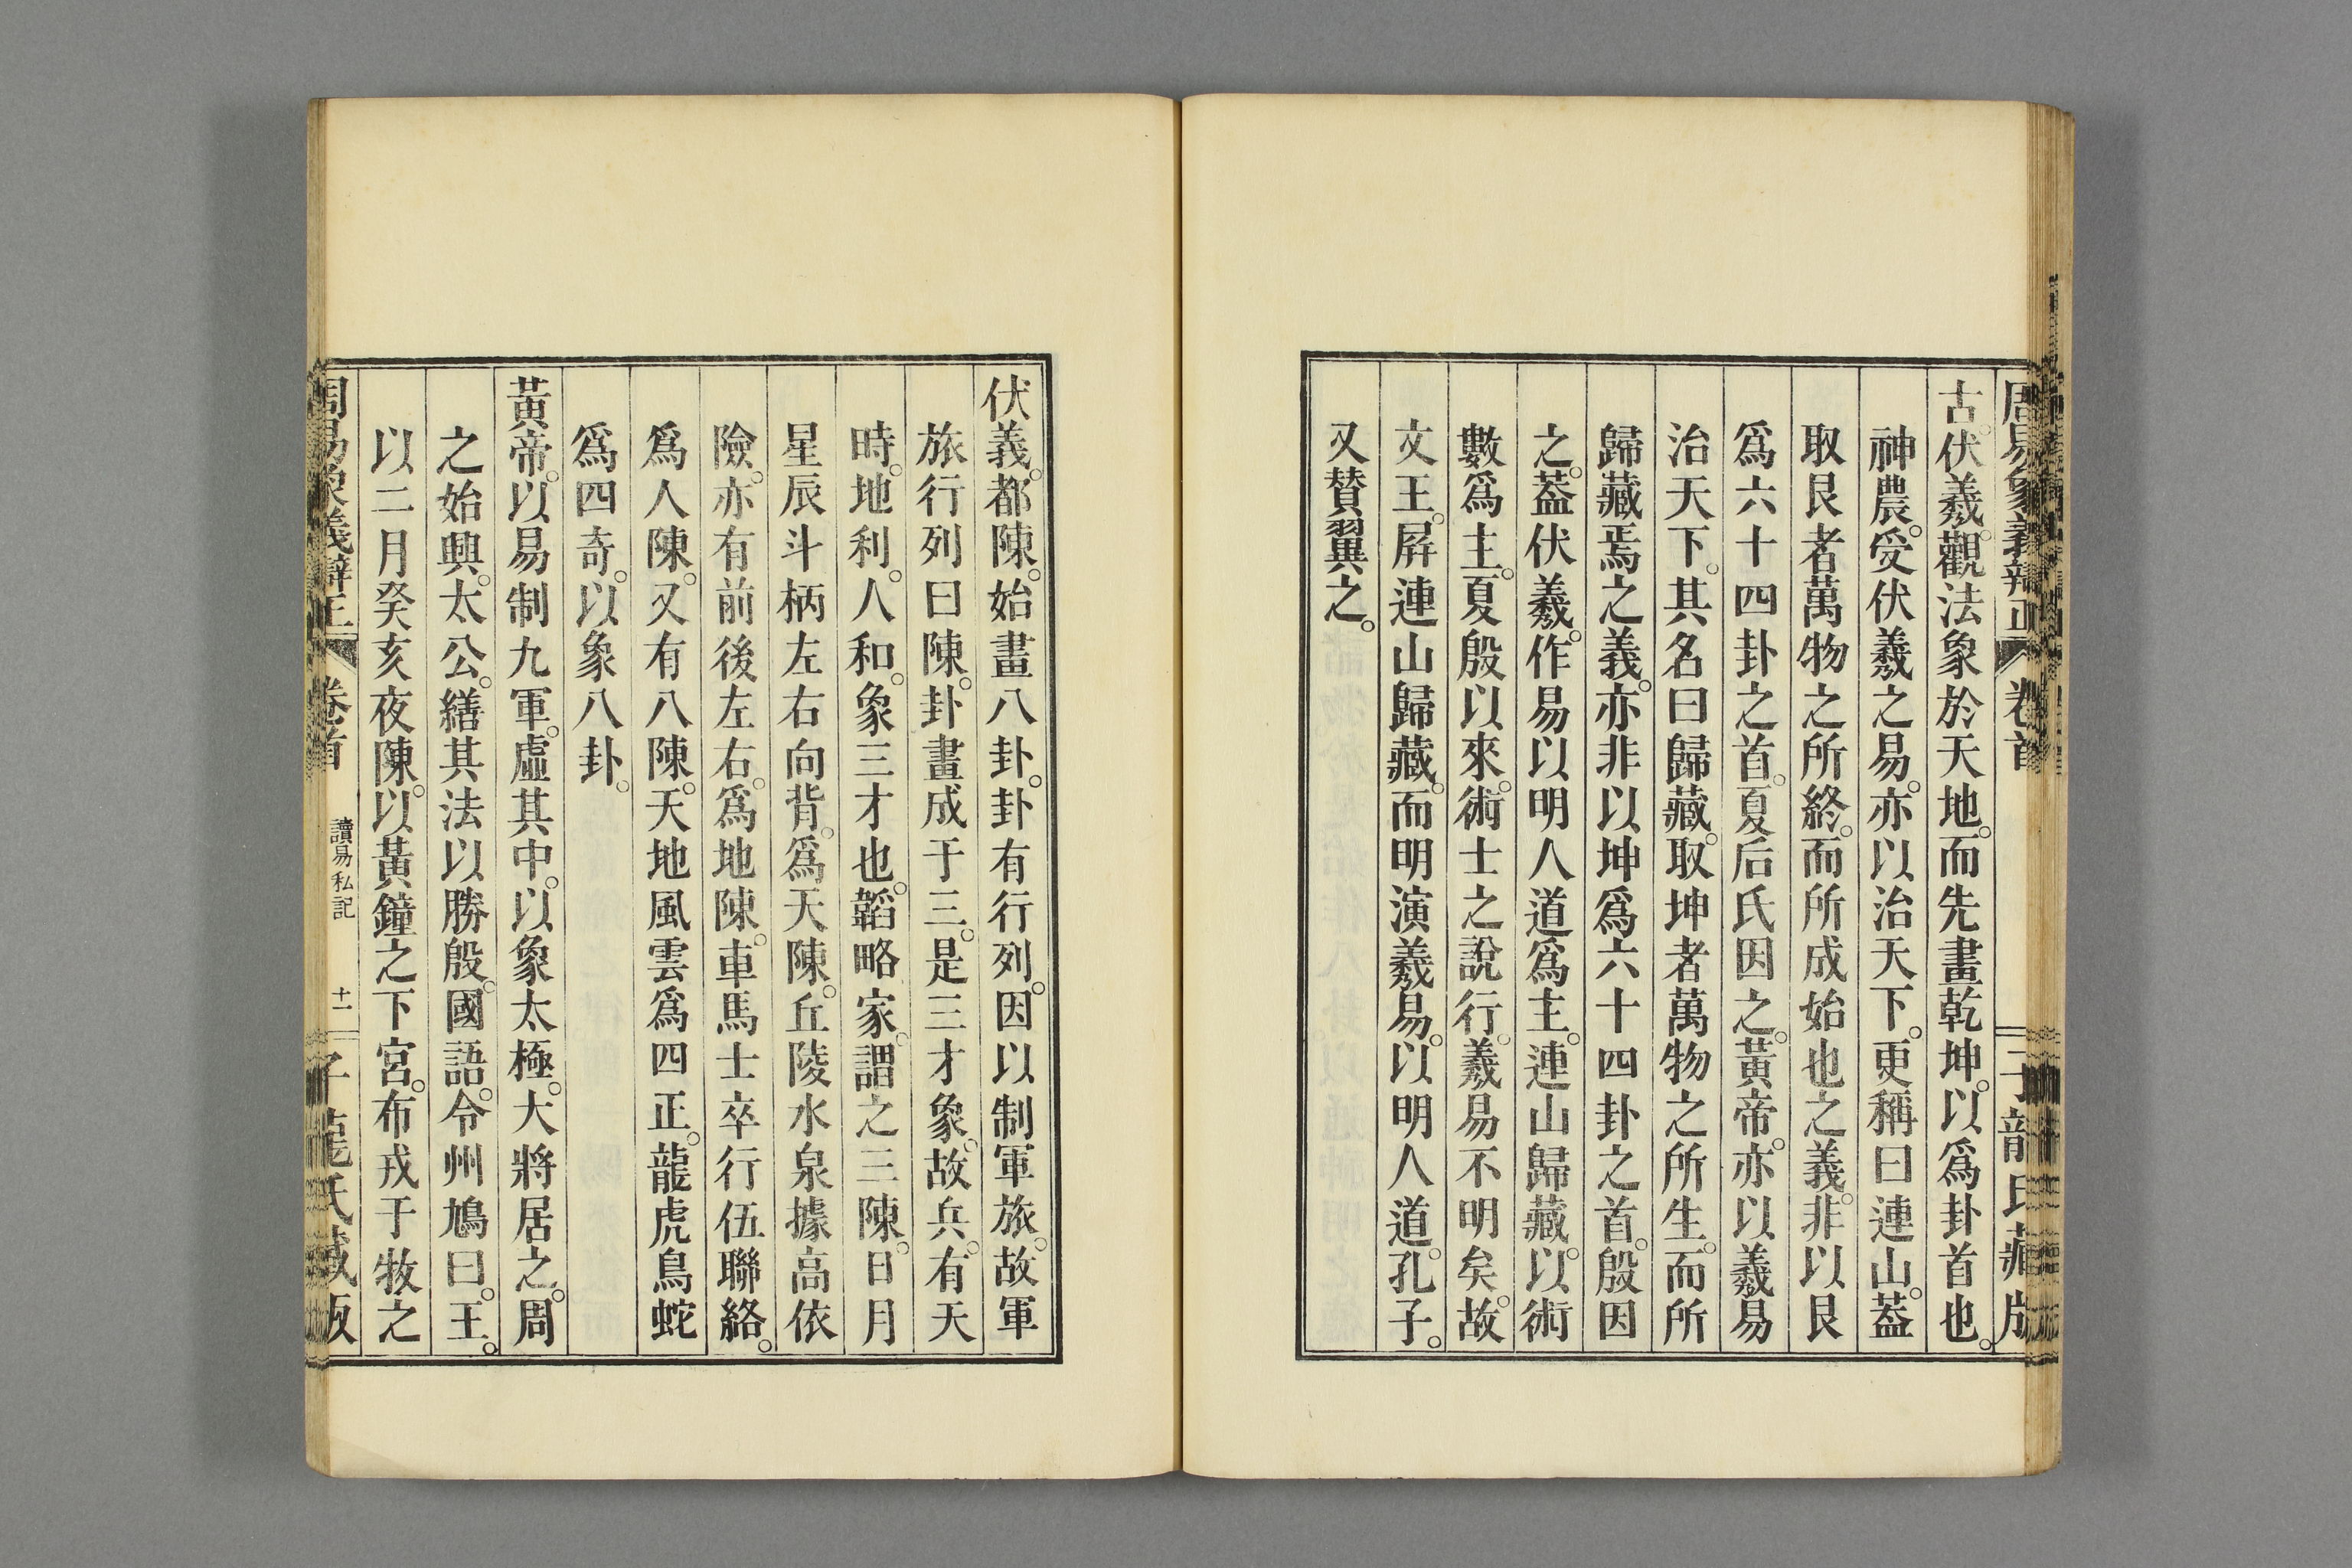 周易象義辯正 卷首 子龍氏藏版
古伏羲。觀法象於天地。而先畫乾坤。以爲卦首也。
神農。受伏羲之易。亦以治天下。更稱曰連山。葢
取艮者萬物之所終。而所成始也之義。非以艮
爲六十四卦之首。夏后氏因之。黃帝。亦以羲易
治天下。其名曰歸藏。取坤者萬物之所生。而所
歸藏焉之義。亦非以坤爲六十四卦之首。殷因
之。葢伏羲。作易以明人道爲主。連山歸藏。以術
數爲主。夏殷以來。術士之說行。羲易不明矣。故
文王。屛連山歸藏。而明演羲易。以明人道。孔子。
又贊翼之。
伏義。都陳。始畫八卦。卦有行列。因以制軍旅。故軍
旅行列曰陳。卦畫成于三。是三才象。故兵。有天
時。地利。人和。象三才也。韜略家。謂之三陳。日月
星辰斗柄左右向背。爲天陳。丘陵水泉據高依
險。亦有前後左右。爲地陳。車馬士卒行伍聯絡。
爲人陳。又有八陳。天地風雲爲四正。龍虎鳥蛇
爲四奇。以象八卦。
黃帝。以易制九軍。虛其中。以象太極。大將居之。周
之始興。太公。繕其法以勝殷。國語。令州鳩曰。王。
以二月癸亥夜陳。以黃鐘之下宮。布戎于牧之
周易象義辯正 卷首 讀易私記 十一 子龍氏藏版